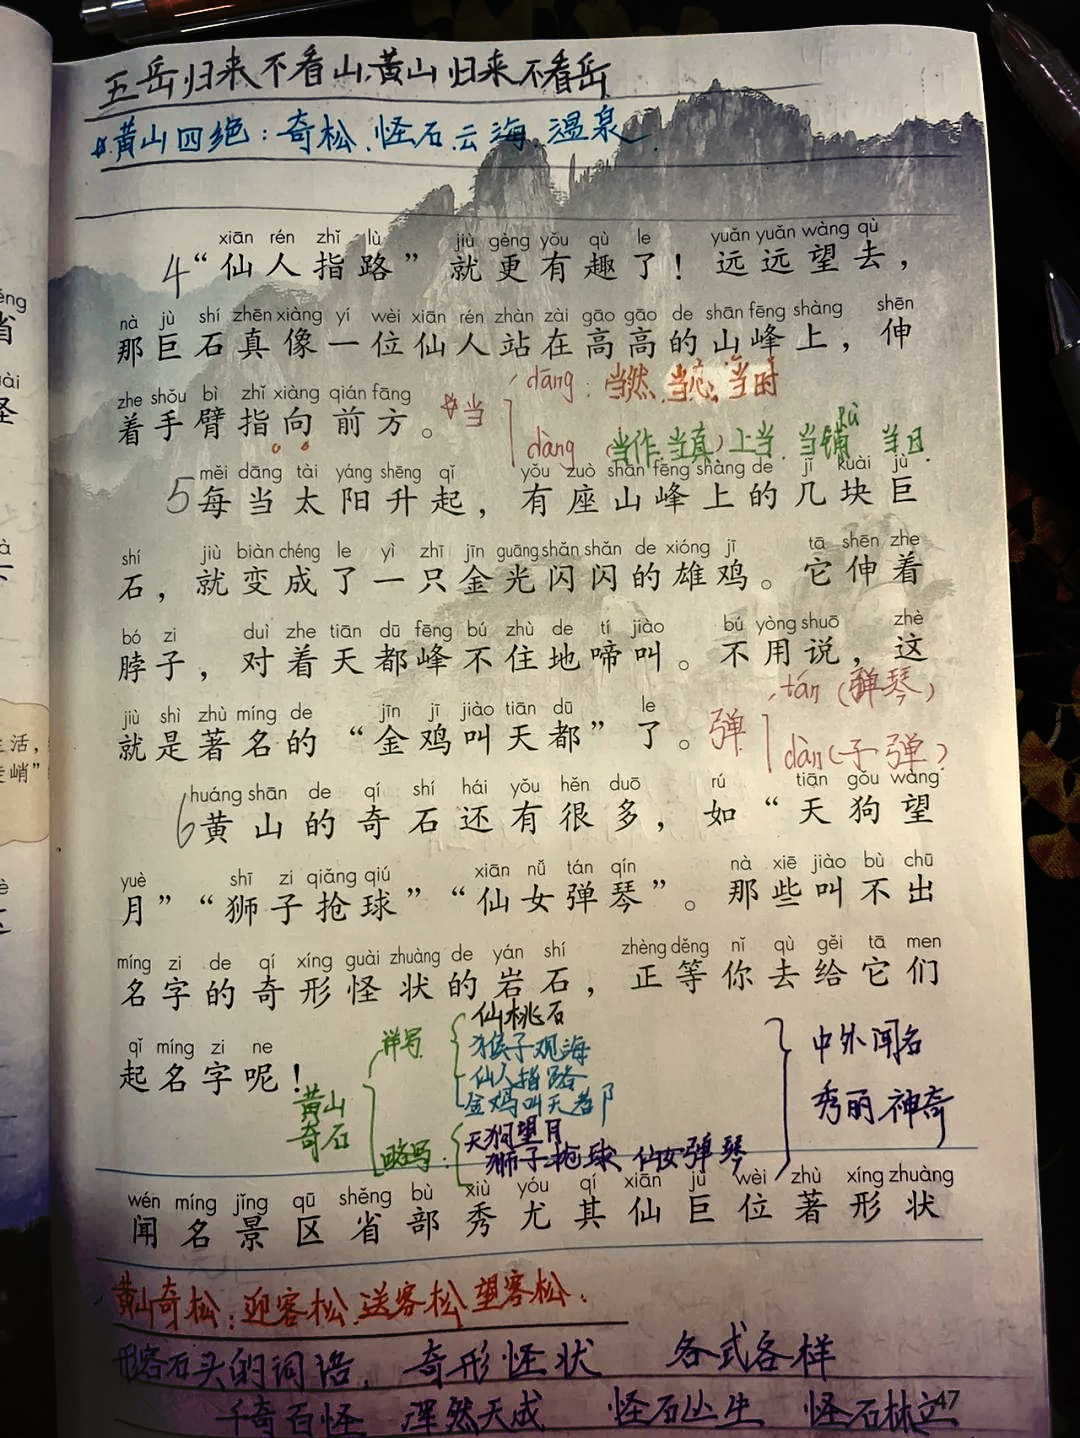 五岳归来不看山,黄山归来不看岳
黄山四绝：奇松、怪石、云海、温泉
xiān rén zhǐ lù jiù gèng yǒu qù le yuǎn yuǎn wàng qù
4“仙人指路”就更有趣了！远远望去，
nà jù shí zhēn xiàng yí wèi xiān rén zhàn zài gāo gāo de shān fēng shàng shēn
那巨石真像一位仙人站在高高的山峰上，伸
dāng：当然、当心、当时
zhe shǒu bì zhǐ xiàng qián fāng
着手臂指向前方。
当
dàng（当作、当真）上当、当铺、当日
pù
měi dāng tài yáng shēng qǐ yǒu zuò shān fēng shàng de jǐ kuài jù
5每当太阳升起，有座山峰上的几块巨
shí jiù biàn chéng le yì zhī jīn guāng shǎn shǎn de xióng jī tā shēn zhe
石，就变成了一只金光闪闪的雄鸡。它伸着
bó zi duì zhe tiān dū fēng bú zhù de tí jiào bú yòng shuō zhè
脖子，对着天都峰不住地啼叫。不用说，这
tán（弹琴）
jiù shì zhù míng de jīn jī jiào tiān dū le
就是著名的“金鸡叫天都”了。
弹
dàn（子弹）
huáng shān de qí shí hái yǒu hěn duō rú tiān gǒu wàng
6黄山的奇石还有很多，如“天狗望
yuè shī zi qiǎng qiú xiān nǚ tán qín nà xiē jiào bù chū
月”“狮子抢球”“仙女弹琴”。那些叫不出
míng zi de qí xíng guài zhuàng de yán shí zhèng děng nǐ qù gěi tā men
名字的奇形怪状的岩石，正等你去给它们
qǐ míng zi ne
起名字呢！
黄山
奇石
详写
仙桃石
猴子观海
仙人指路
金鸡叫天都
略写：
天狗望月
狮子抢球 仙女弹琴
中外闻名
秀丽神奇
wén míng jǐng qū shěng bù xiù yóu qí xiān jù wèi zhù xíng zhuàng
闻名景区省部秀尤其仙巨位著形状
黄山奇松：迎客松、送客松、望客松
形容石头的词语， 奇形怪状 各式各样
千奇百怪 浑然天成 怪石丛生 怪石林立
47